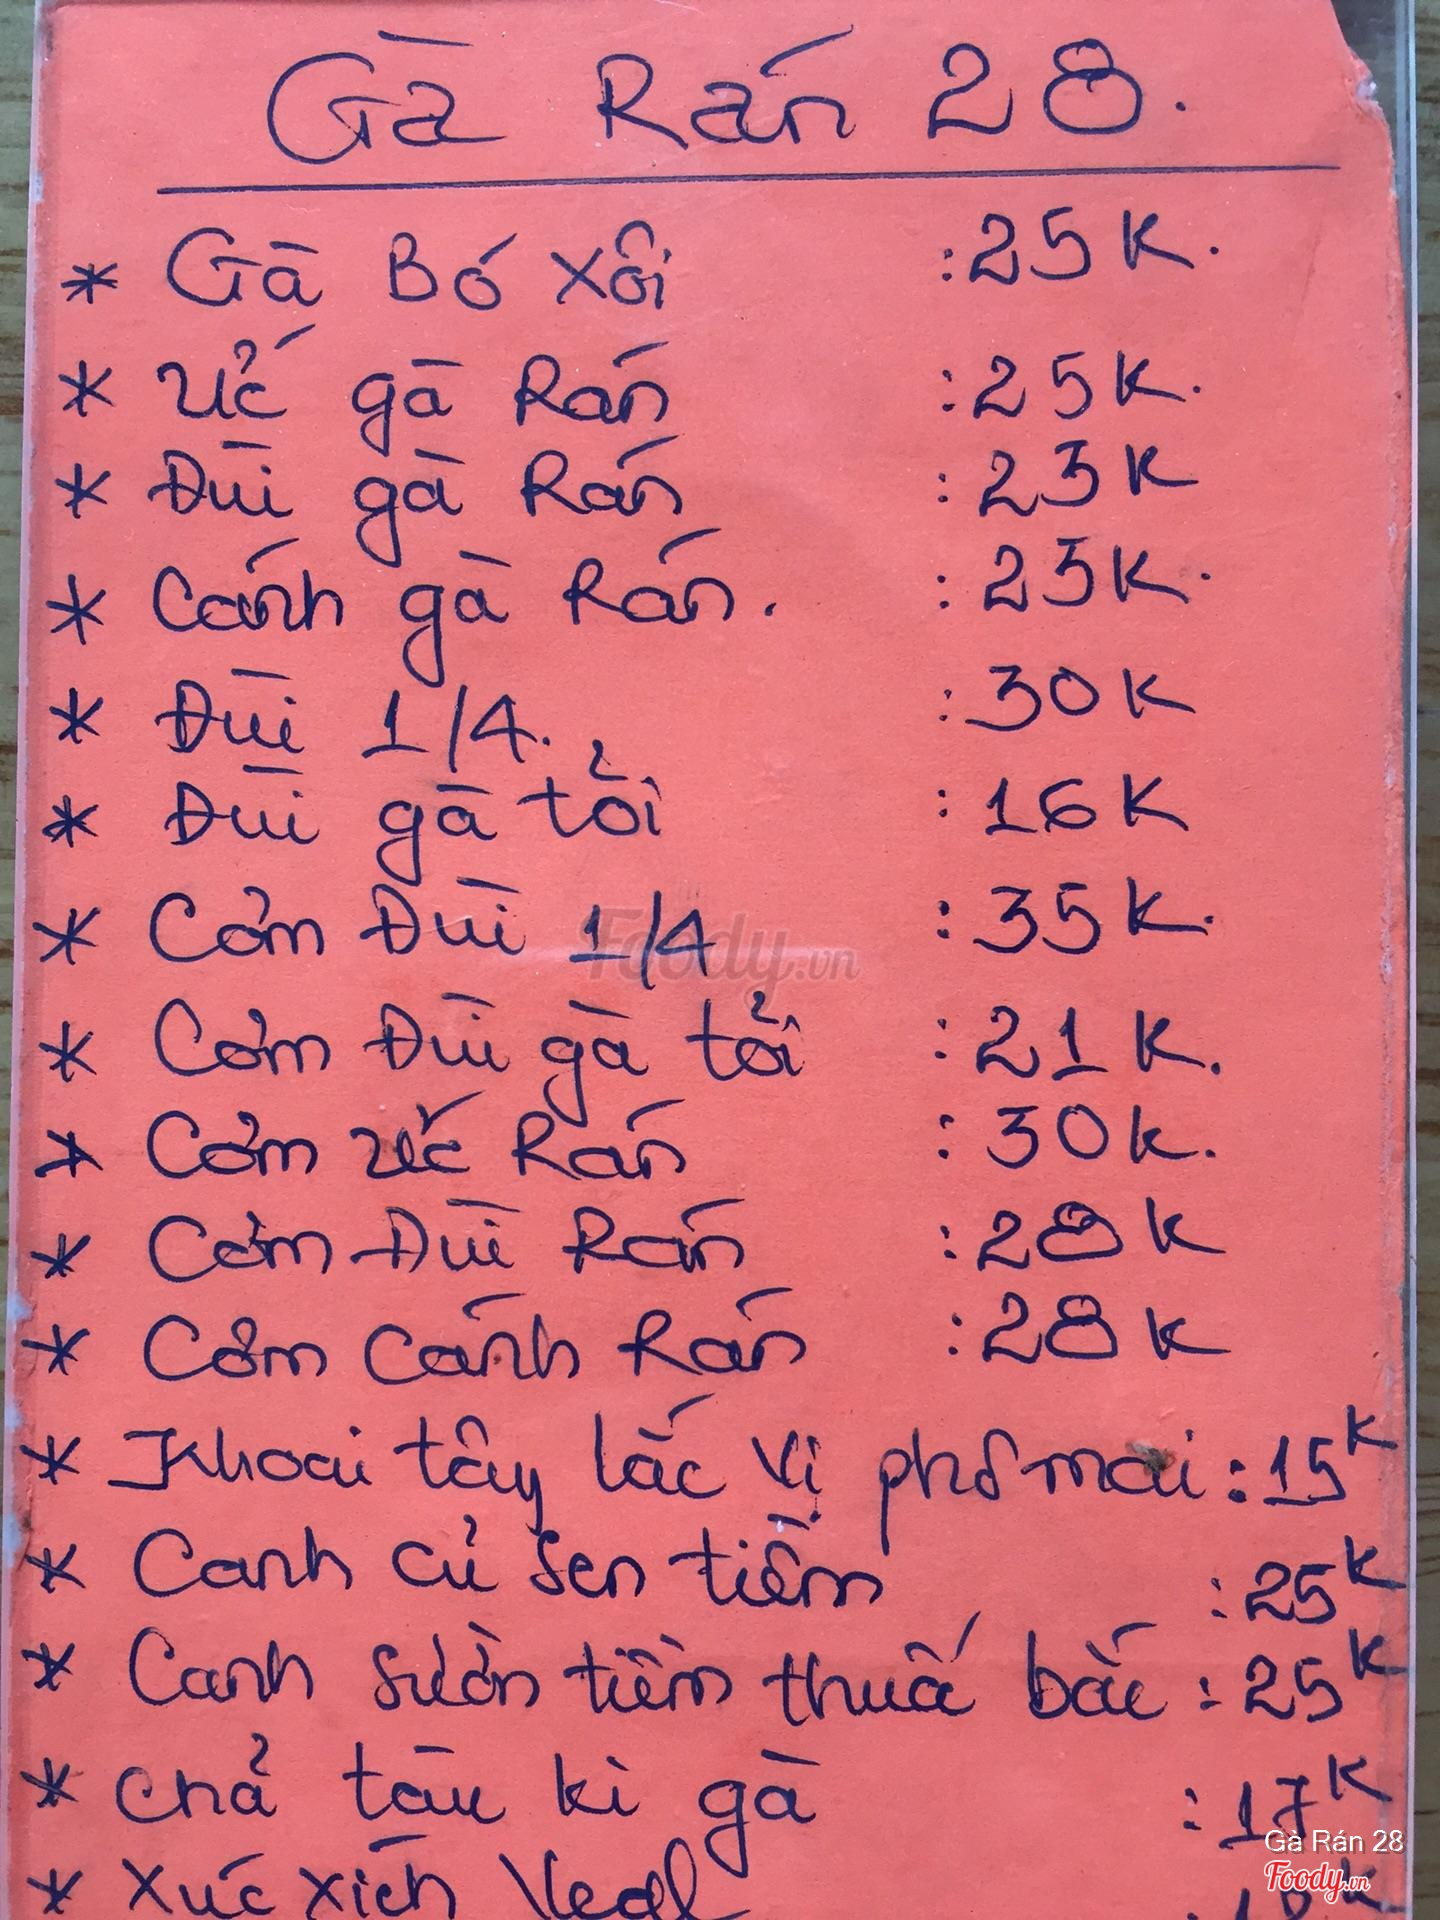 Gà Rán 28.
* Gà Bó Xôi : 25K.
* Ức gà Rán : 25K.
* Đùi gà Rán : 23K
* Cánh gà Rán. : 23K.
* Đùi 1/4. : 30K
* Đùi gà tỏi : 16K
* Cơm Đùi 1/4 : 35K.
* Cơm Đùi gà tỏi : 21K.
* Cơm ức Rán : 30K.
* Cơm Đùi Rán : 28K
* Cơm cánh Rán : 28K
* Khoai tây lắc vị phô mai : 15K
* Canh củ sen tiềm : 25K
* Canh sườn tiềm thuốc bắc : 25K
* Chả tàu kì gà : 17K
* Xúc xích Veal
Foody.vn
Gà Rán 28
Foody.vn